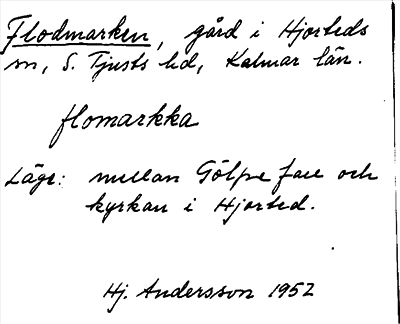 Flodmarken, gård i Hjorteds
sn, S. Tjusts hd, Kalmar län.
flomarkka
Läge: mellan Gölpe
och
kyrkan i Hjorted.
Hj. Andersson 1952